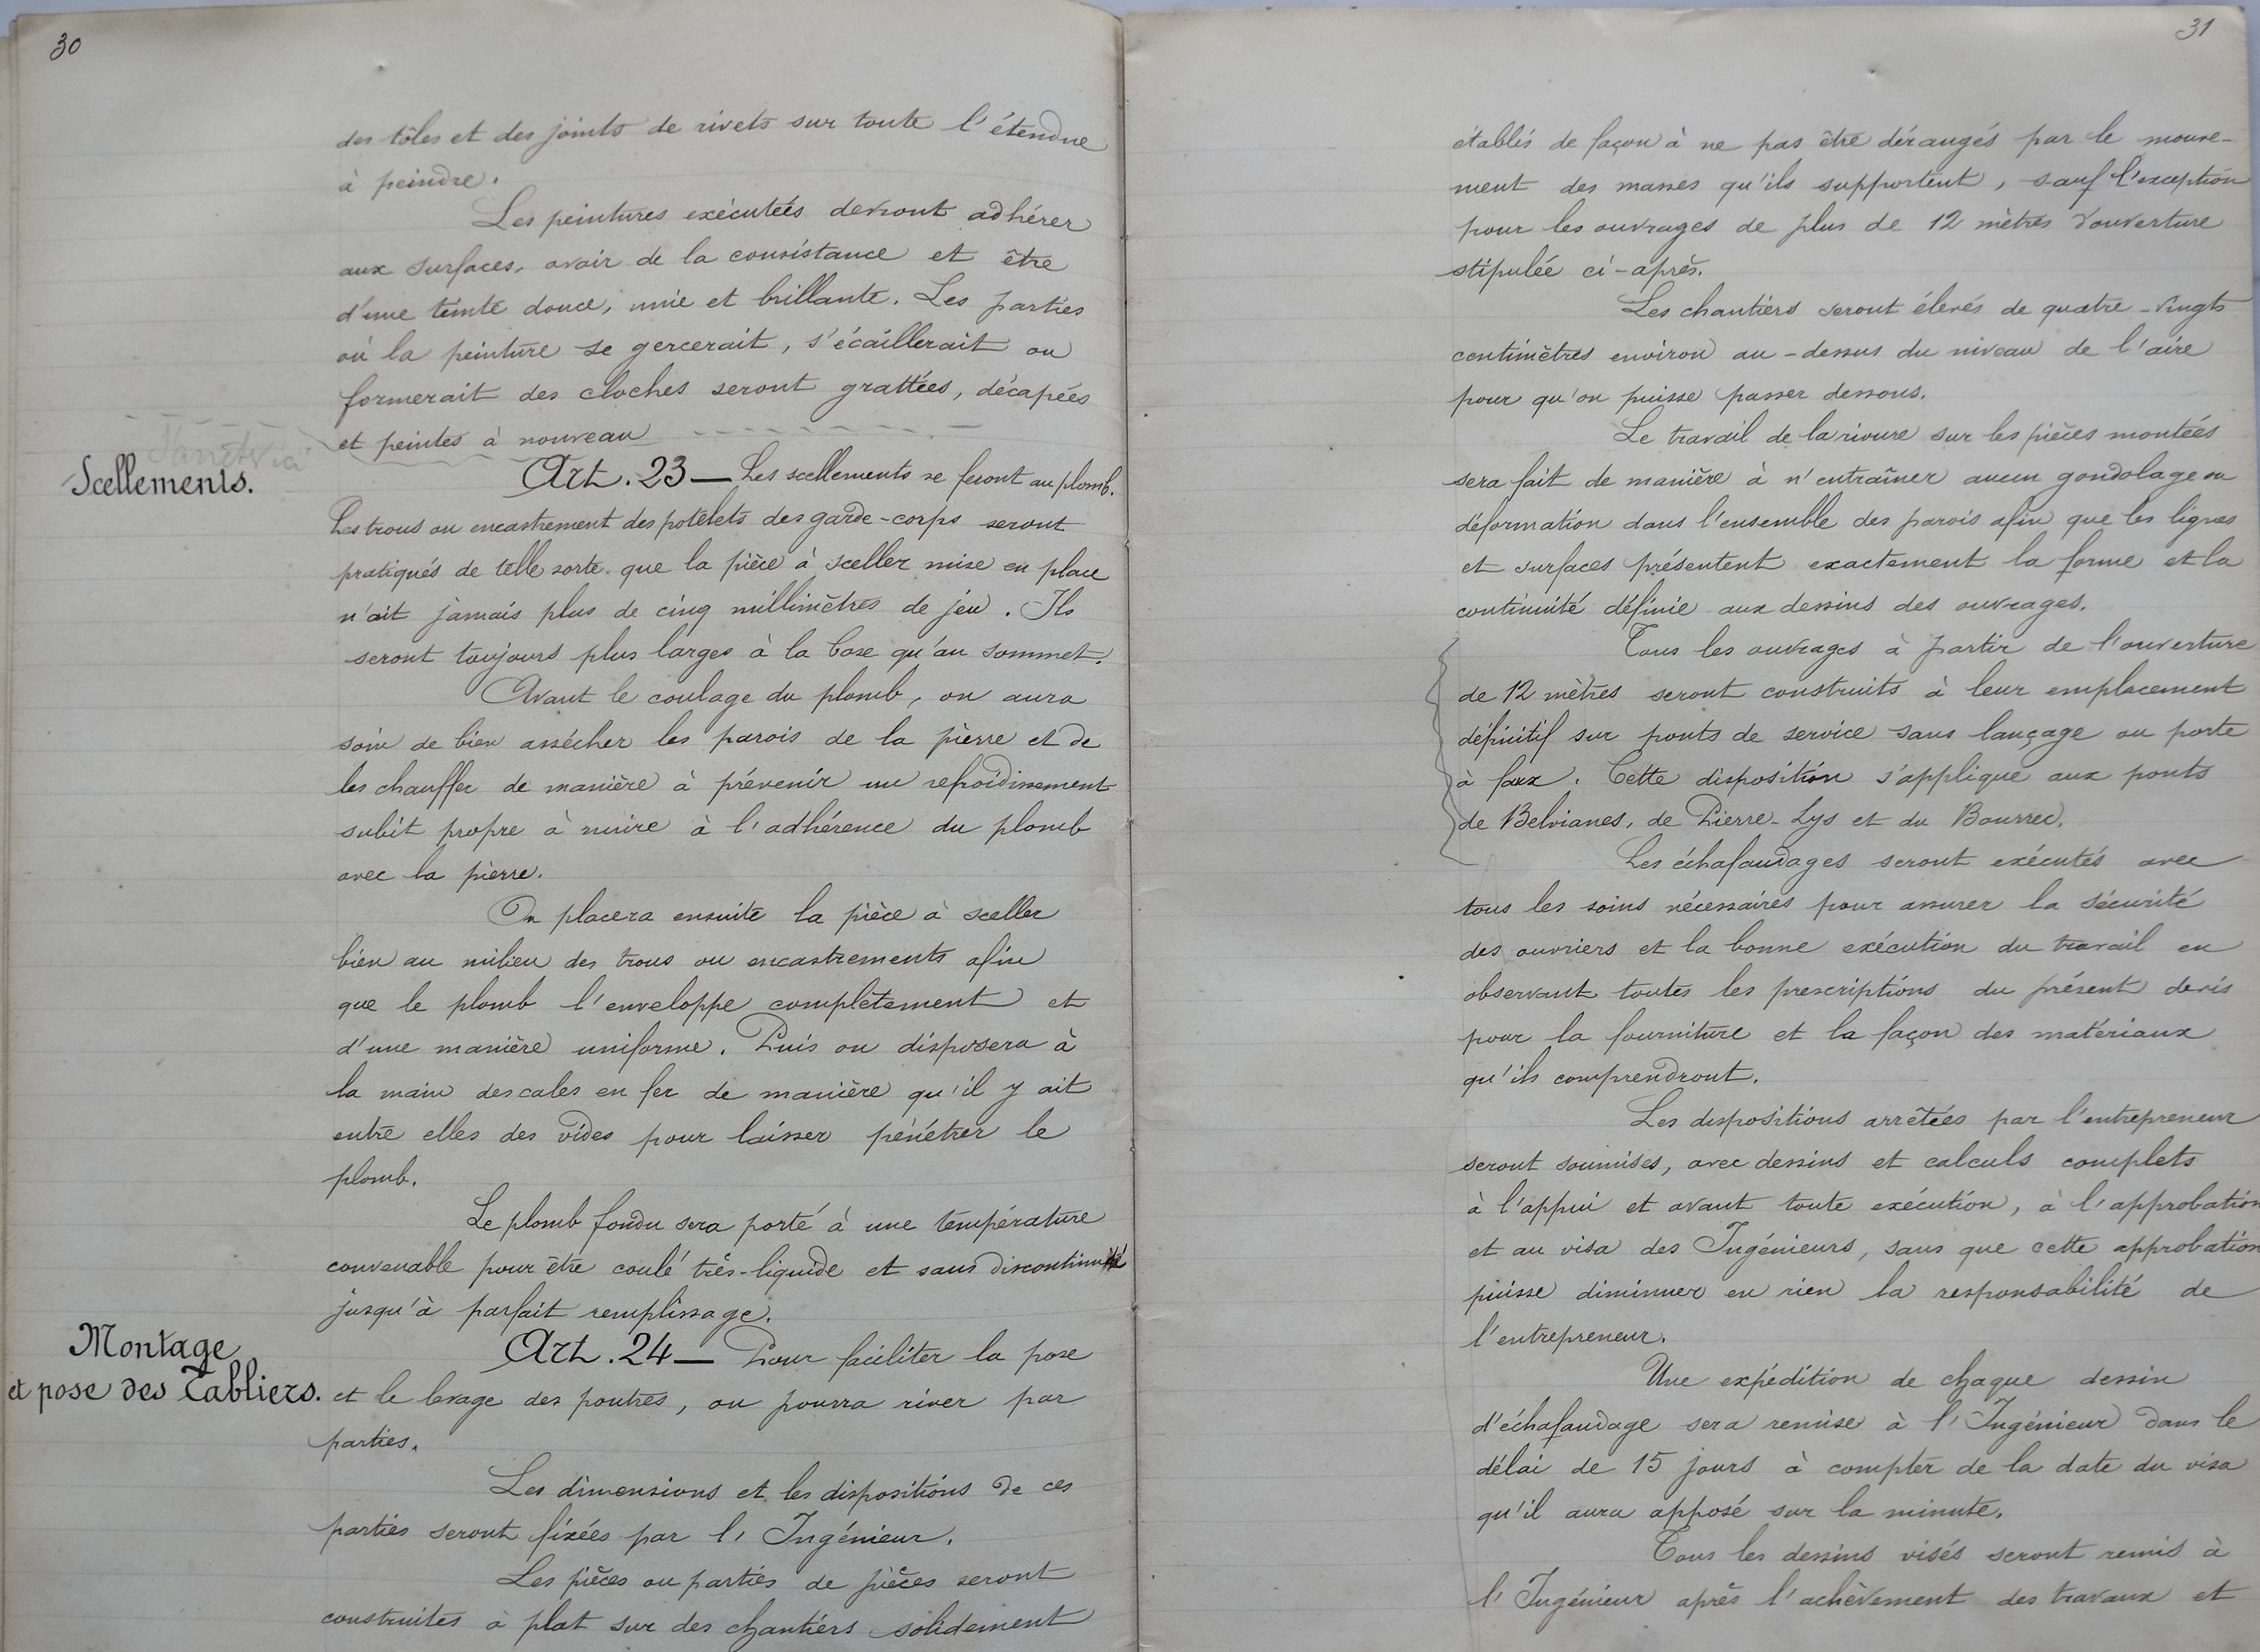 30
des tôles et des joints de rivets sur toute l'étendue
à peindre.
Les peintures exécutées devront adhérer
aux surfaces, avoir de la consistance et être
d'une teinte douce, unie et brillante. Les parties
où la peinture se gercerait, s'écaillerait ou
formerait des cloches seront grattées, décapées
et peintes à nouveau
Scellements.
Art. 23 — Les scellements se feront au plomb.
Les trous ou encastrement des potelets des garde-corps seront
pratiqués de telle sorte que la pièce à sceller mise en place
n'ait jamais plus de cinq millimètres de jeu. Ils
seront toujours plus larges à la base qu'au sommet.
Avant le coulage du plomb, on aura
soin de bien assécher les parois de la pierre et de
les chauffer de manière à prévenir un refroidissement
subit propre à nuire à l'adhérence du plomb
avec la pierre.
On placera ensuite la pièce à sceller
bien au milieu des trous ou encastrements afin
que le plomb l'enveloppe complètement et
d'une manière uniforme. Puis on disposera à
la main des cales en fer de manière qu'il y ait
entre elles des vides pour laisser pénétrer le
plomb.
Le plomb fondu sera porté à une température
convenable pour être coulé très-liquide et sans discontinuité
jusqu'à parfait remplissage.
Montage
et pose des Tabliers.
Art. 24 — Pour faciliter la pose
et le levage des poutres, on pourra river par
parties.
Les dimensions et les dispositions de ces
parties seront fixées par l'Ingénieur.
Les pièces ou parties de pièces seront
construites à plat sur des chantiers solidement
31
établis de façon à ne pas être dérangés par le mouve-
ment des masses qu'ils supportent, sauf l'exception
pour les ouvrages de plus de 12 mètres d'ouverture
stipulée ci-après.
Les chantiers seront élevés de quatre-vingts
centimètres environ au-dessus du niveau de l'aire
pour qu'on puisse passer dessous.
Le travail de la rivure sur les pièces montées
sera fait de manière à n'entraîner aucun gondolage ou
déformation dans l'ensemble des parois afin que les lignes
et surfaces présentent exactement la forme et la
continuité définie aux dessins des ouvrages.
Tous les ouvrages à partir de l'ouverture
de 12 mètres seront construits à leur emplacement
définitif sur ponts de service sans lançage ou porte
à faux. Cette disposition s'applique aux ponts
de Belvianes, de Pierre-Lys et du Bourrec.
Les échafaudages seront exécutés avec
tous les soins nécessaires pour assurer la sécurité
des ouvriers et la bonne exécution du travail en
observant toutes les prescriptions du présent devis
pour la fourniture et la façon des matériaux
qu'ils comprendront.
Les dispositions arrêtées par l'entrepreneur
seront soumises, avec dessins et calculs complets
à l'appui et avant toute exécution, à l'approbation
et au visa des Ingénieurs, sans que cette approbation
puisse diminuer en rien la responsabilité de
l'entrepreneur.
Une expédition de chaque dessin
d'échafaudage sera remise à l'Ingénieur dans le
délai de 15 jours à compter de la date du visa
qu'il aura apposé sur la minute.
Tous les dessins visés seront remis à
l'Ingénieur après l'achèvement des travaux et